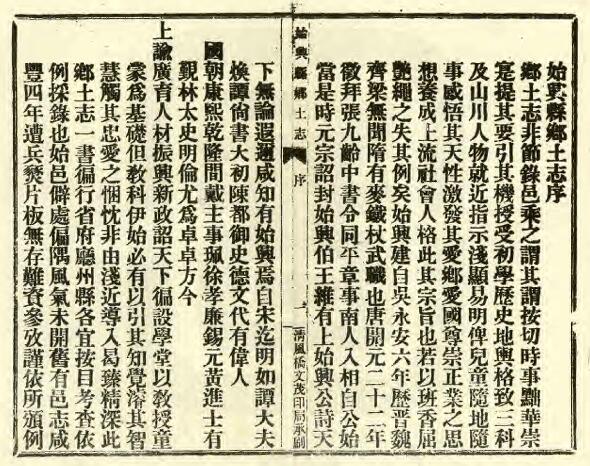 始興縣鄉土志序
鄉土志非節錄邑乘之謂其謂按切時事黜華崇
寔提其要引其機授受初學歷史地輿格致三科
及山川人物就近指示淺顯易明俾兒童隨地隨
事感悟其天性激發其愛鄉愛國尊崇正業之思
想養成上流社會人格此其宗旨也若以班香屈
艷繩之失其例矣始興建自吳永安六年歷晉魏
齊梁無聞隋有麥鐵杖武職也唐開元二十二年
徵拜張九齡中書令同平章事南人入相自公始
當是時元宗詔封始興伯王維有上始興公詩天
始興縣鄉土志
序
一
清風橋文茂印局承刷
下無論遐邇咸知有始興焉自宋迄明如譚大夫
煥譚尚書大初陳都御史德文代有偉人
國朝康熙乾隆間戴主事珮徐孝廉錫元黃進士有
觀林太史明倫尤為卓卓方今
上諭廣育人材振興新政詔天下徧設學堂以敎授童
蒙爲基礎但敎科伊始必有以引其知覺濬其智
慧觸其忠愛之悃忱非由淺近導入曷臻精深此
鄉土志一書徧行省府廳州縣各宜按目考查依
例採錄也始邑僻處偏隅風氣未開舊有邑志咸
豐四年遭兵燹片板無存難資參攷謹依所頒例